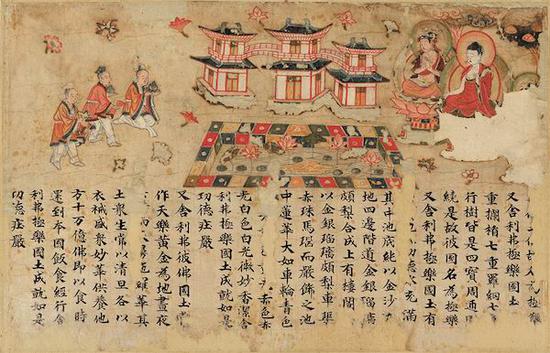 又舍利弗極樂國土
重攔楯七重羅網七
行樹皆是四寶周匝
繞是故彼國名為極樂
又舍利弗極樂國土有
功德水充滿
其中池底純以金沙
地四邊階道金銀瑠璃
頗梨合成上有樓閣
以金銀瑠璃頗梨車璖
赤珠馬瑙而嚴飾之池
中蓮華大如車輪青色
赤色赤
光白色白光微妙香潔舍
利弗極樂國土成就如是
功德莊嚴
又舍利弗彼佛國土常
作天樂黃金為地晝夜
華其
土衆生常以清旦各以
衣祴盛衆妙華供養他
方十万億佛即以食時
還到本國飯食經行舍
利弗極樂國土成就如是
功德莊嚴